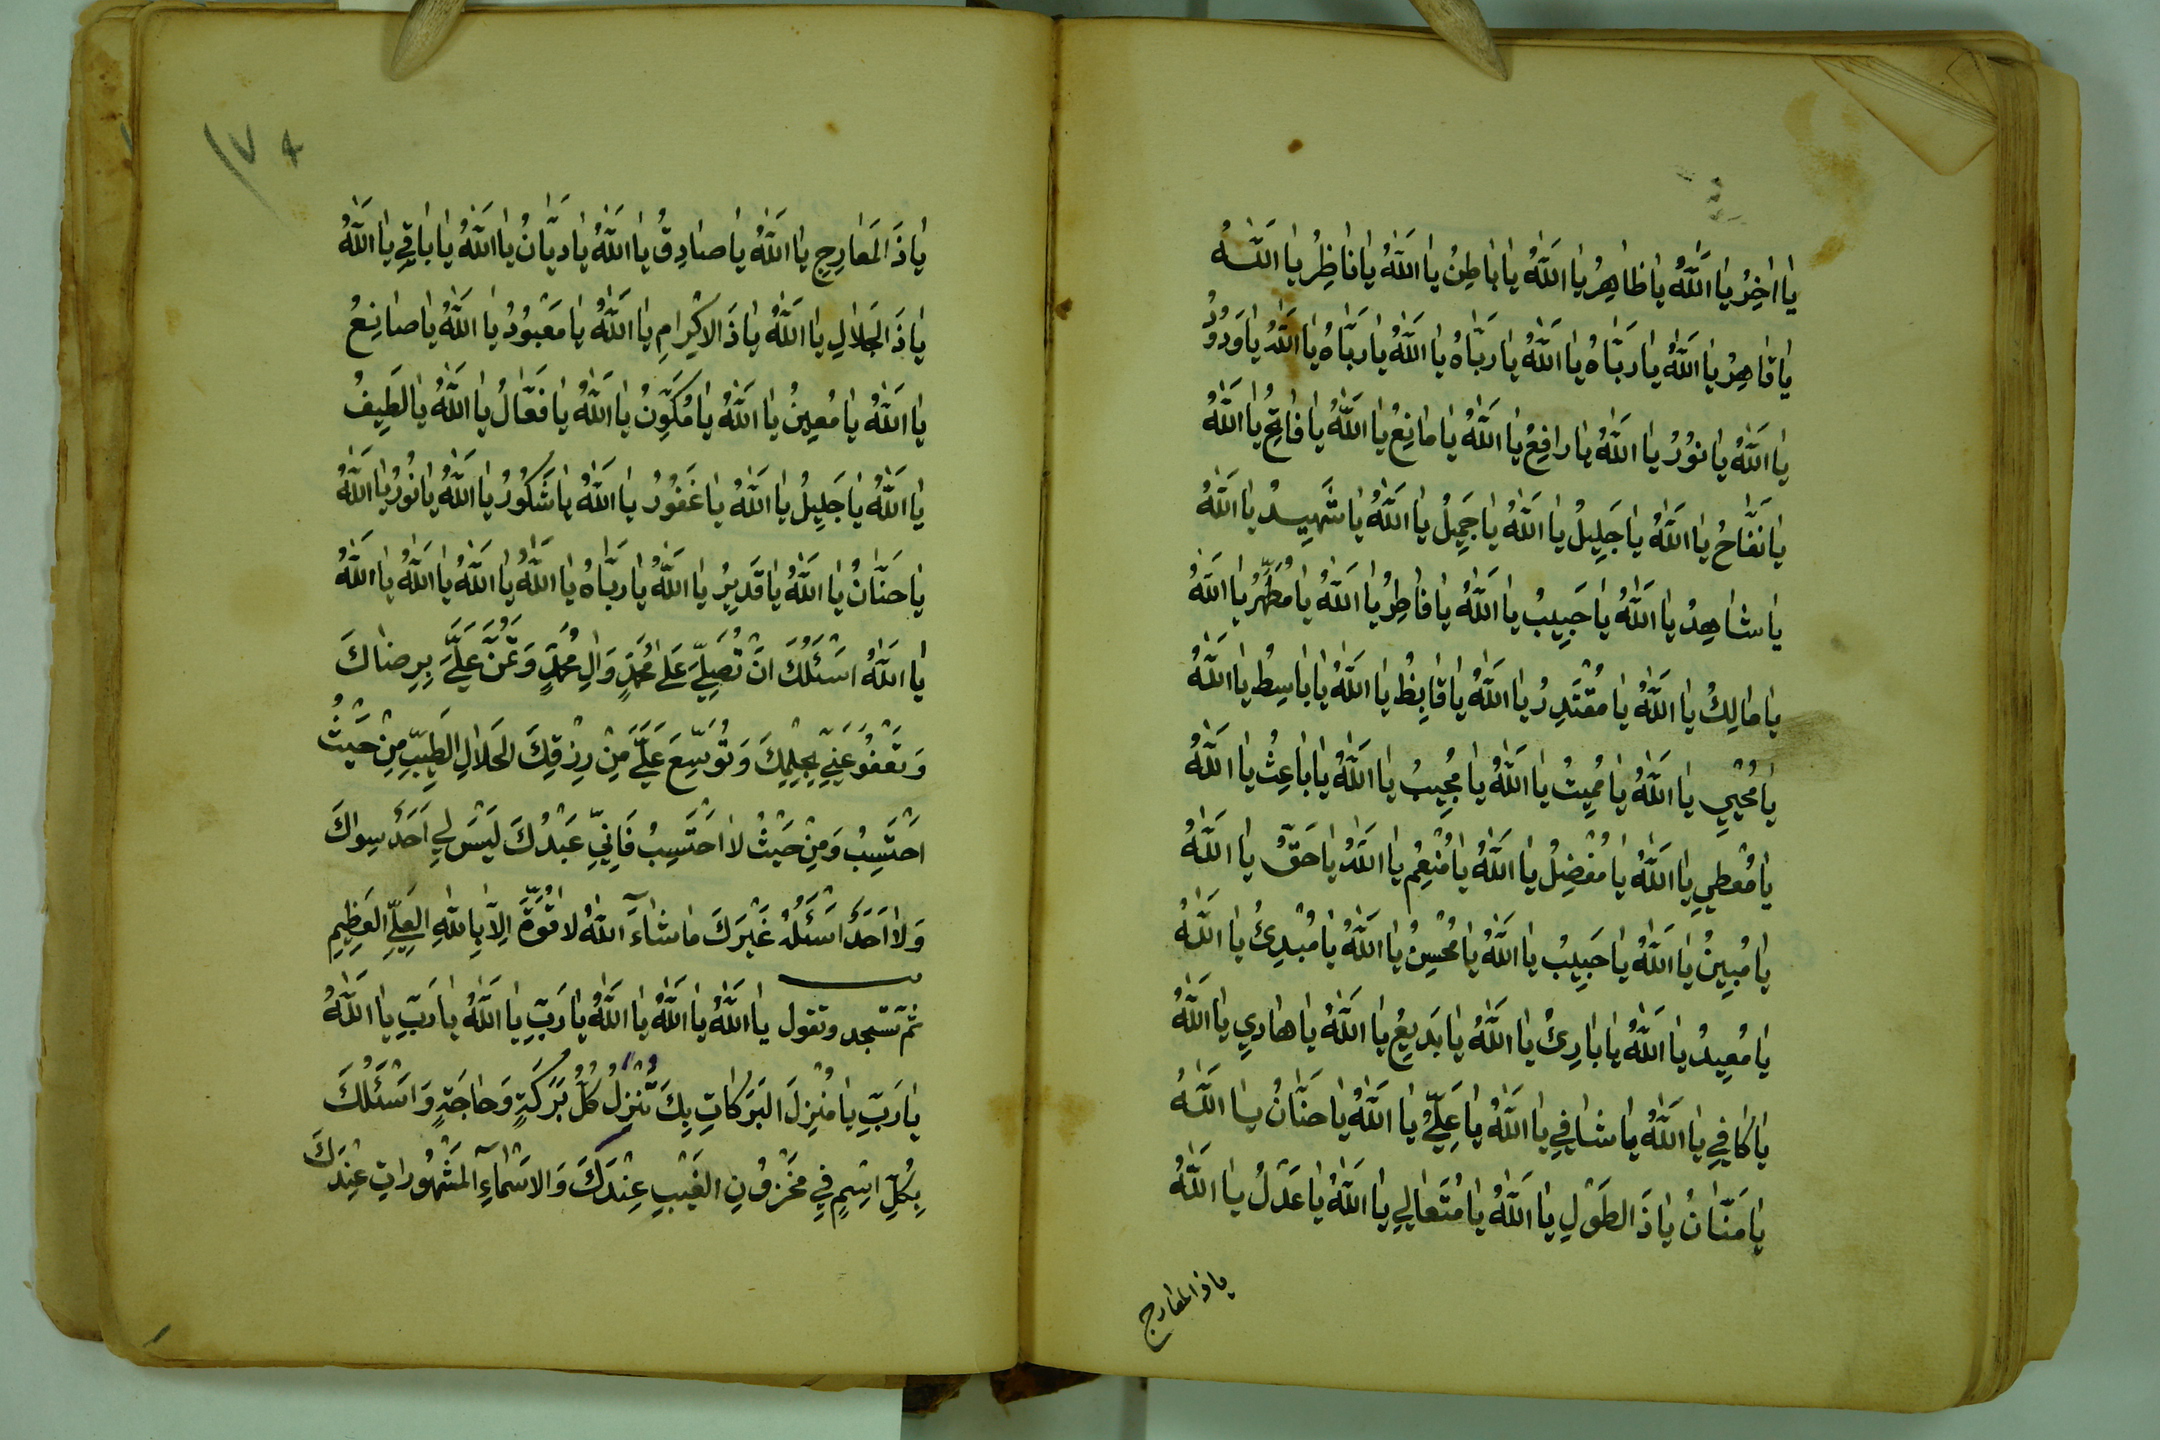 يا اخِرُ يا اَللّٰهُ يا ظاهِرُ يا اَللّٰهُ يا باطِنُ يا اَللّٰهُ يا ناظِرُ يا اَللّٰهُ
يا قاهِرُ يا اَللّٰهُ يا رَبّاهُ يا اَللّٰهُ يا رَبّاهُ يا اَللّٰهُ يا رَبّاهُ يا اَللّٰهُ يا وَدُودُ
يا اَللّٰهُ يا نُورُ يا اَللّٰهُ يا رافِعُ يا اَللّٰهُ يا مانِعُ يا اَللّٰهُ يا فاتِحُ يا اَللّٰهُ
يا نَفّاحُ يا اَللّٰهُ يا جَلِيلُ يا اَللّٰهُ يا جَمِيلُ يا اَللّٰهُ يا شَهِيدُ يا اَللّٰهُ
يا شاهِدُ يا اَللّٰهُ يا حَبِيبُ يا اَللّٰهُ يا فاطِرُ يا اَللّٰهُ يا مُطَهِّرُ يا اَللّٰهُ
يا مالِكُ يا اَللّٰهُ يا مُقْتَدِرُ يا اَللّٰهُ يا قابِظُ يا اَللّٰهُ يا باسِطُ يا اَللّٰهُ
يا مُحْيِي يا اَللّٰهُ يا مُمِيتُ يا اَللّٰهُ يا مُجِيبُ يا اَللّٰهُ يا باعِثُ يا اَللّٰهُ
يا مُعْطِي يا اَللّٰهُ يا مُفْضِلُ يا اَللّٰهُ يا مُنْعِمُ يا اَللّٰهُ يا حَقُّ يا اَللّٰهُ
يا مُبِينُ يا اَللّٰهُ يا حَبِيبُ يا اَللّٰهُ يا مُحْسِنُ يا اَللّٰهُ يا مُبْدِئُ يا اَللّٰهُ
يا مُعِيدُ يا اَللّٰهُ يا بارِئُ يا اَللّٰهُ يا بَدِيعُ يا اَللّٰهُ يا هادِي يا اَللّٰهُ
يا كافِي يا اَللّٰهُ يا شافِي يا اَللّٰهُ يا عَلِيُّ يا اَللّٰهُ يا حَنّانُ يا اَللّٰهُ
يا مَنّانُ يا ذَا الطَوْلِ يا اَللّٰهُ يا مُتَعالِي يا اَللّٰهُ يا عَدْلُ يا اَللّٰهُ
يا ذا المعارج
١٧٤
يا ذَ المَعارِجِ يا اَللّٰهُ يا صادِقُ يا اَللّٰهُ يا دَيّانُ يا اَللّٰهُ يا باقِي يا اَللّٰهُ
يا ذَ الجَلالِ يا اَللّٰهُ يا ذَ الاِكْرامِ يا اَللّٰهُ يا مَعْبُودُ يا اَللّٰهُ يا صانِعُ
يا اَللّٰهُ يا مُعِينُ يا اَللّٰهُ يا مُكَوِّنُ يا اَللّٰهُ يا فَعّالُ يا اَللّٰهُ يا لَطِيفُ
يا اَللّٰهُ يا جَلِيلُ يا اَللّٰهُ يا غَفُورُ يا اَللّٰهُ يا شَكُورُ يا اَللّٰهُ يا نُورُ يا اَللّٰهُ
يا حَنّانُ يا اَللّٰهُ يا قَدِيرُ يا اَللّٰهُ يا رَبّاهُ يا اَللّٰهُ يا اَللّٰهُ يا اَللّٰهُ يا اَللّٰهُ
يا اَللّٰهُ اَسْئَلُكَ اَنْ تُصَلِّيَ عَلى مُحَمَّدٍ وَالِ مُحَمَّدٍ وَتَمُنَّ عَلَيَّ بِرِضاكَ
وَتَعْفُوَ عَنِّي بِحِلْمِكَ وَتُوَسِّعَ عَلَيَّ مِنْ رِزْقِكَ الحَلالِ الطَيِّبِ مِنْ حَيْثُ
اَحْتَسِبُ وَمِنْ حَيْثُ لا اَحْتَسِبُ فَاِنِّي عَبْدُكَ لَيْسَ لِي اَحَدٌ سِواكَ
وَلا اَحَدٌ اَسْئَلُهُ غَيْرَكَ ما شاءَ اَللّٰهُ لا قُوَّةَ اِلّا بِاللّٰهِ العَلِيِّ العَظِيمِ
ثم تسجد وتقول يا اَللّٰهُ يا اَللّٰهُ يا اَللّٰهُ يا رَبِّ يا اَللّٰهُ يا رَبِّ يا اَللّٰهُ
يا رَبِّ يا مُنْزِلَ البَرَكاتِ بِكَ تُنْزَلُ كُلُّ بَرَكَةٍ وَحاجَةٍ وَاَسْئَلُكَ
بِكُلِّ اسْمٍ فِي مَخْزُونِ الغَيْبِ عِنْدَكَ وَالاَسْماءِ المَشْهُوراتِ عِنْدَكَ